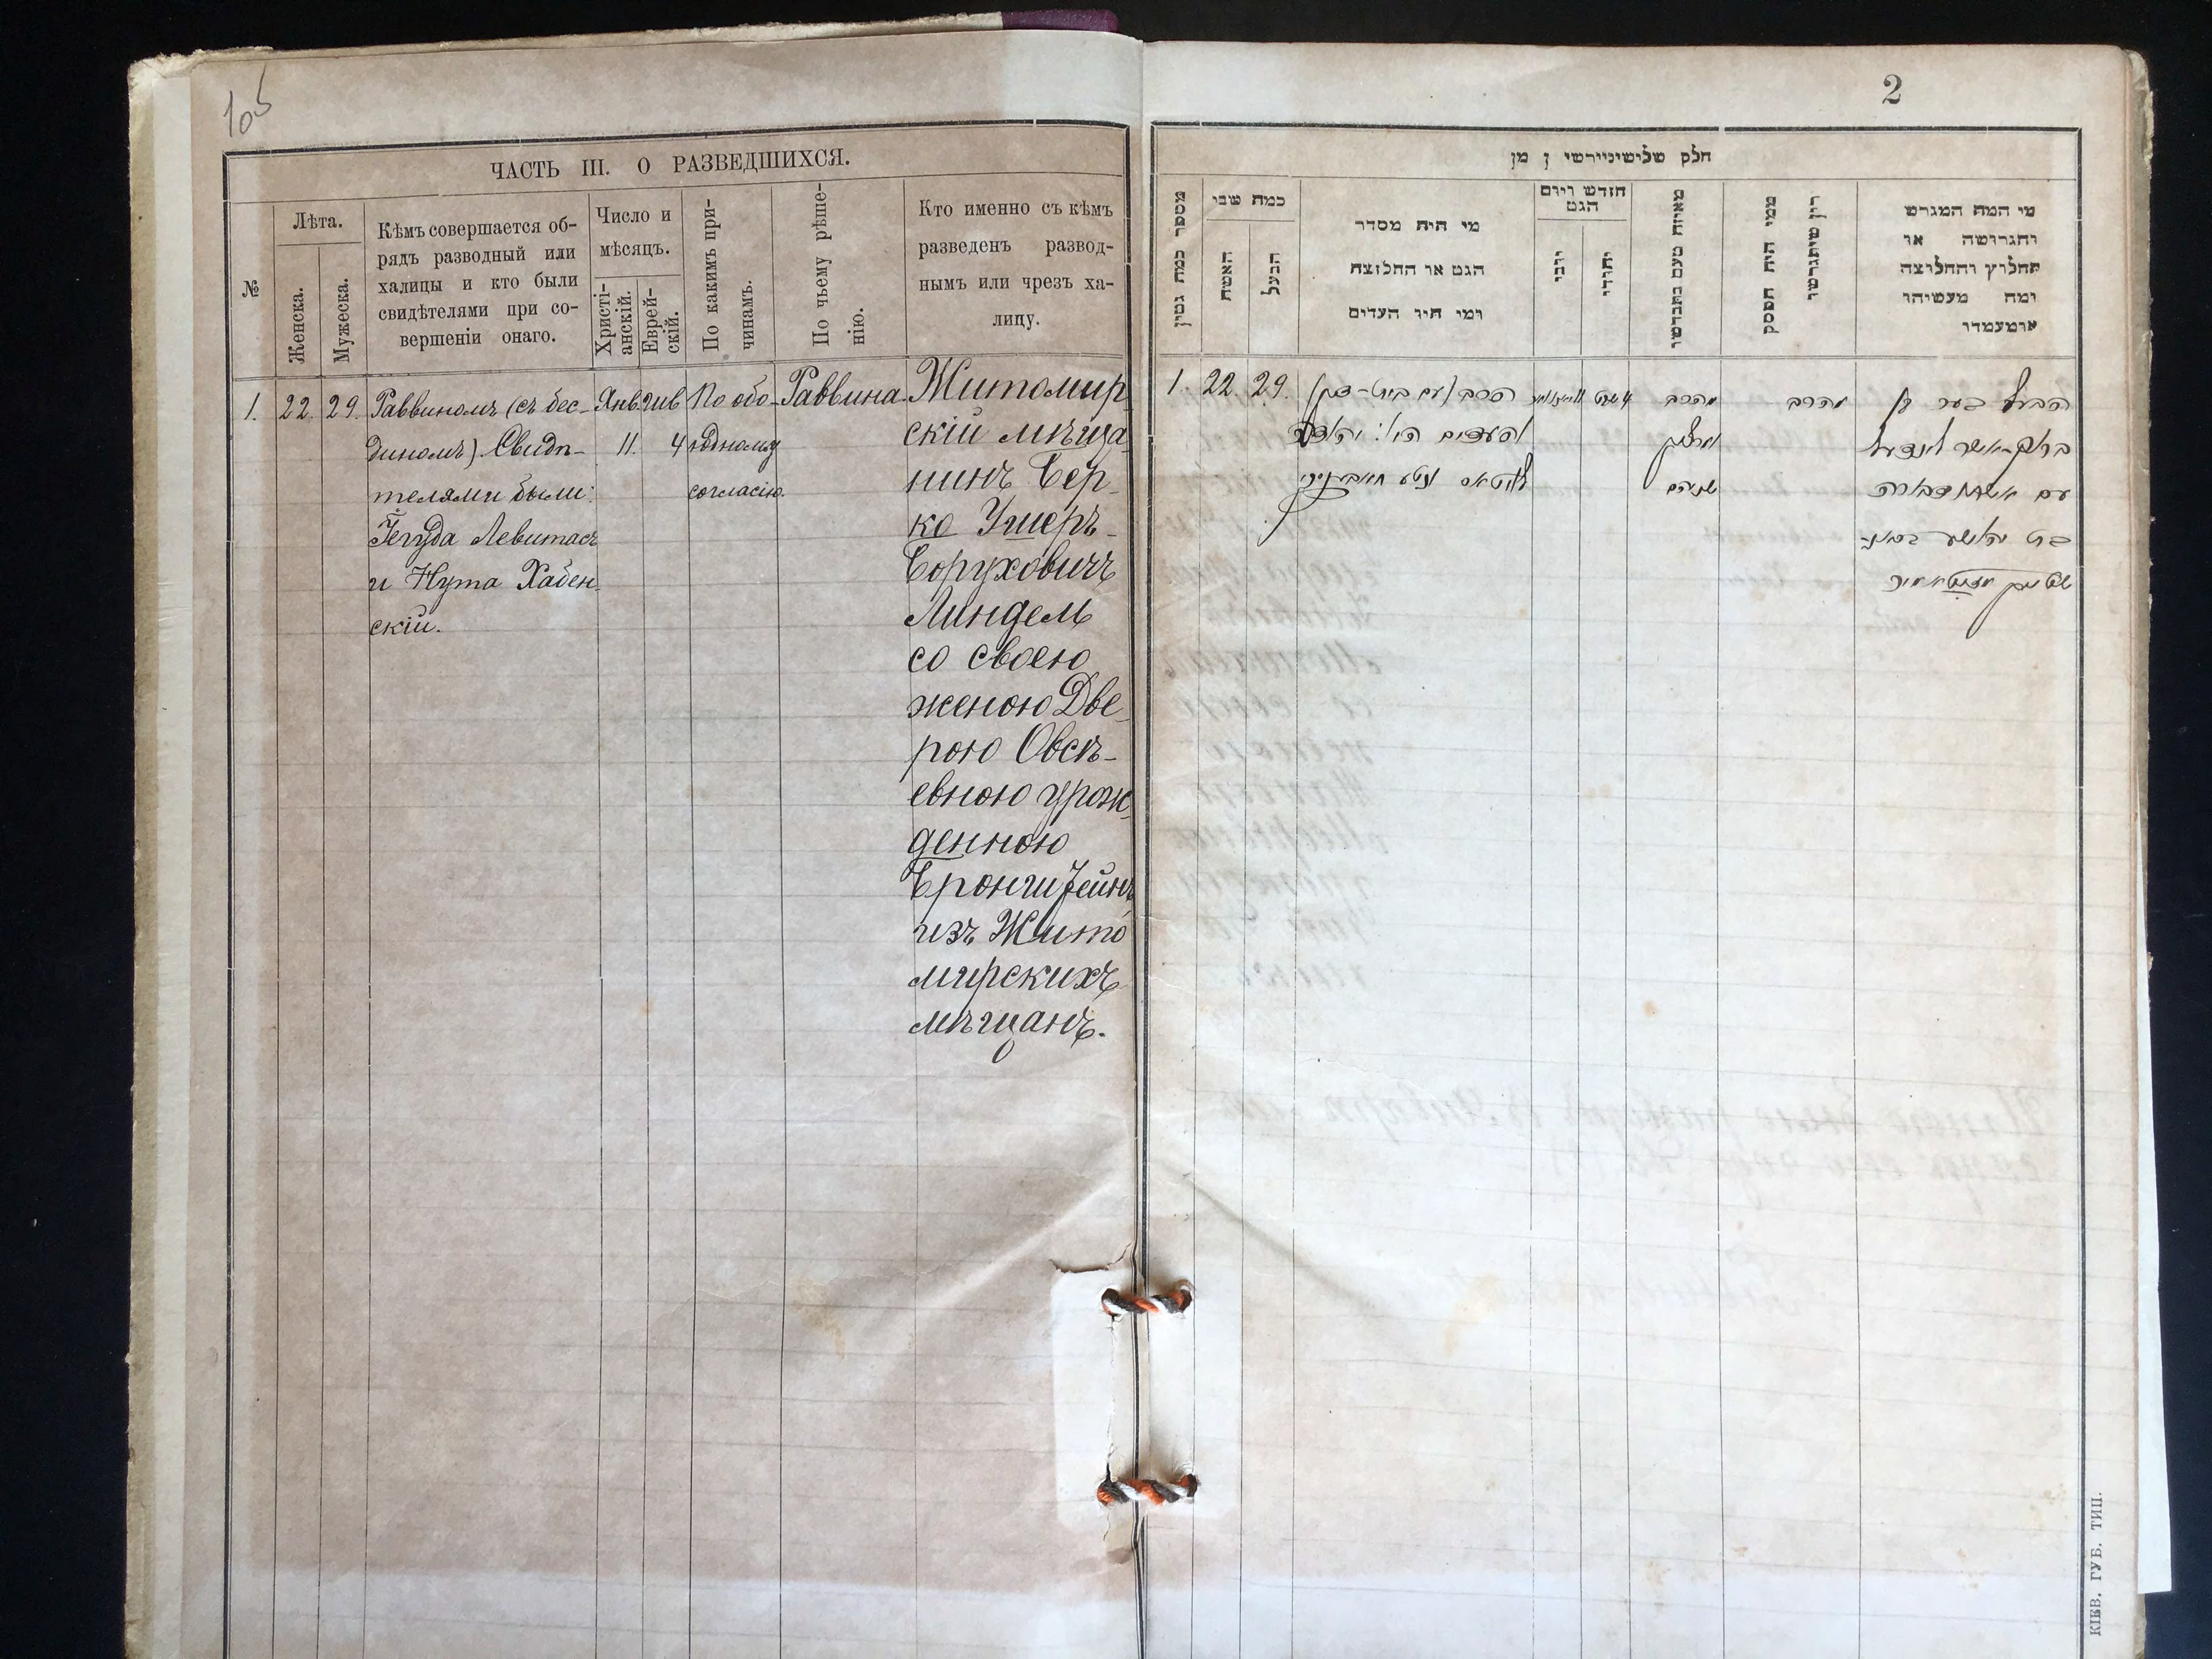 105
ЧАСТЬ III. О РАЗВЕДШИХСЯ.
№
Лѣта.
Женска.
Мужеска.
Кѣмъ совершается об-
рядъ разводный или
халицы и кто были
свидѣтелями при со-
вершеніи онаго.
Число и
мѣсяцъ.
Христі-
анскій.
Еврей-
скій.
По какимъ при-
чинамъ.
По чьему рѣше-
нію.
Кто именно съ кѣмъ
разведенъ развод-
нымъ или чрезъ ха-
лицу.
1.
22.
29.
Раввиномъ (съ бес-
диномъ). Свидѣ-
телями были:
Іегуда Левитасъ
и Нута Хабен-
скій.
Янв.
11.
Шв
4
По обо-
юдному
согласію.
Раввина.
Житомир-
скій мѣща-
нинъ Бер-
ко Ушеръ-
Боруховичъ
Линдель
со своею
женою Две-
рою Овсѣ-
евною урож-
денною
Бронштейнъ
изъ Жито-
мирскихъ
мѣщанъ.
2
חלק שלישי
מן
מספר כמה גטין
כמה שני
האשה
הבעל
מי היה מסדר
הגט או החלוצה
ומי היו העדים
חודש ויום
הגט
יוני
יהודי
מאיזה טעם נתגרשו
ממי היה הפסק
דין שיתגרשו
מי המה המגרש
והגרושה או
החלוץ והחלוצה
ומה מעשיהו
ומעמדו
1.
22.
29.
הרב (עם בית-דין)
והעדים היו: יהודה
לויטאס
11
4 שבט
מרצון
שניהם
מהרב
הבעל בער בן
ברוך-אשר לינדעל
עם אשתו דבורה
בת יהושע
КІЕВ. ГУБ. ТИП.